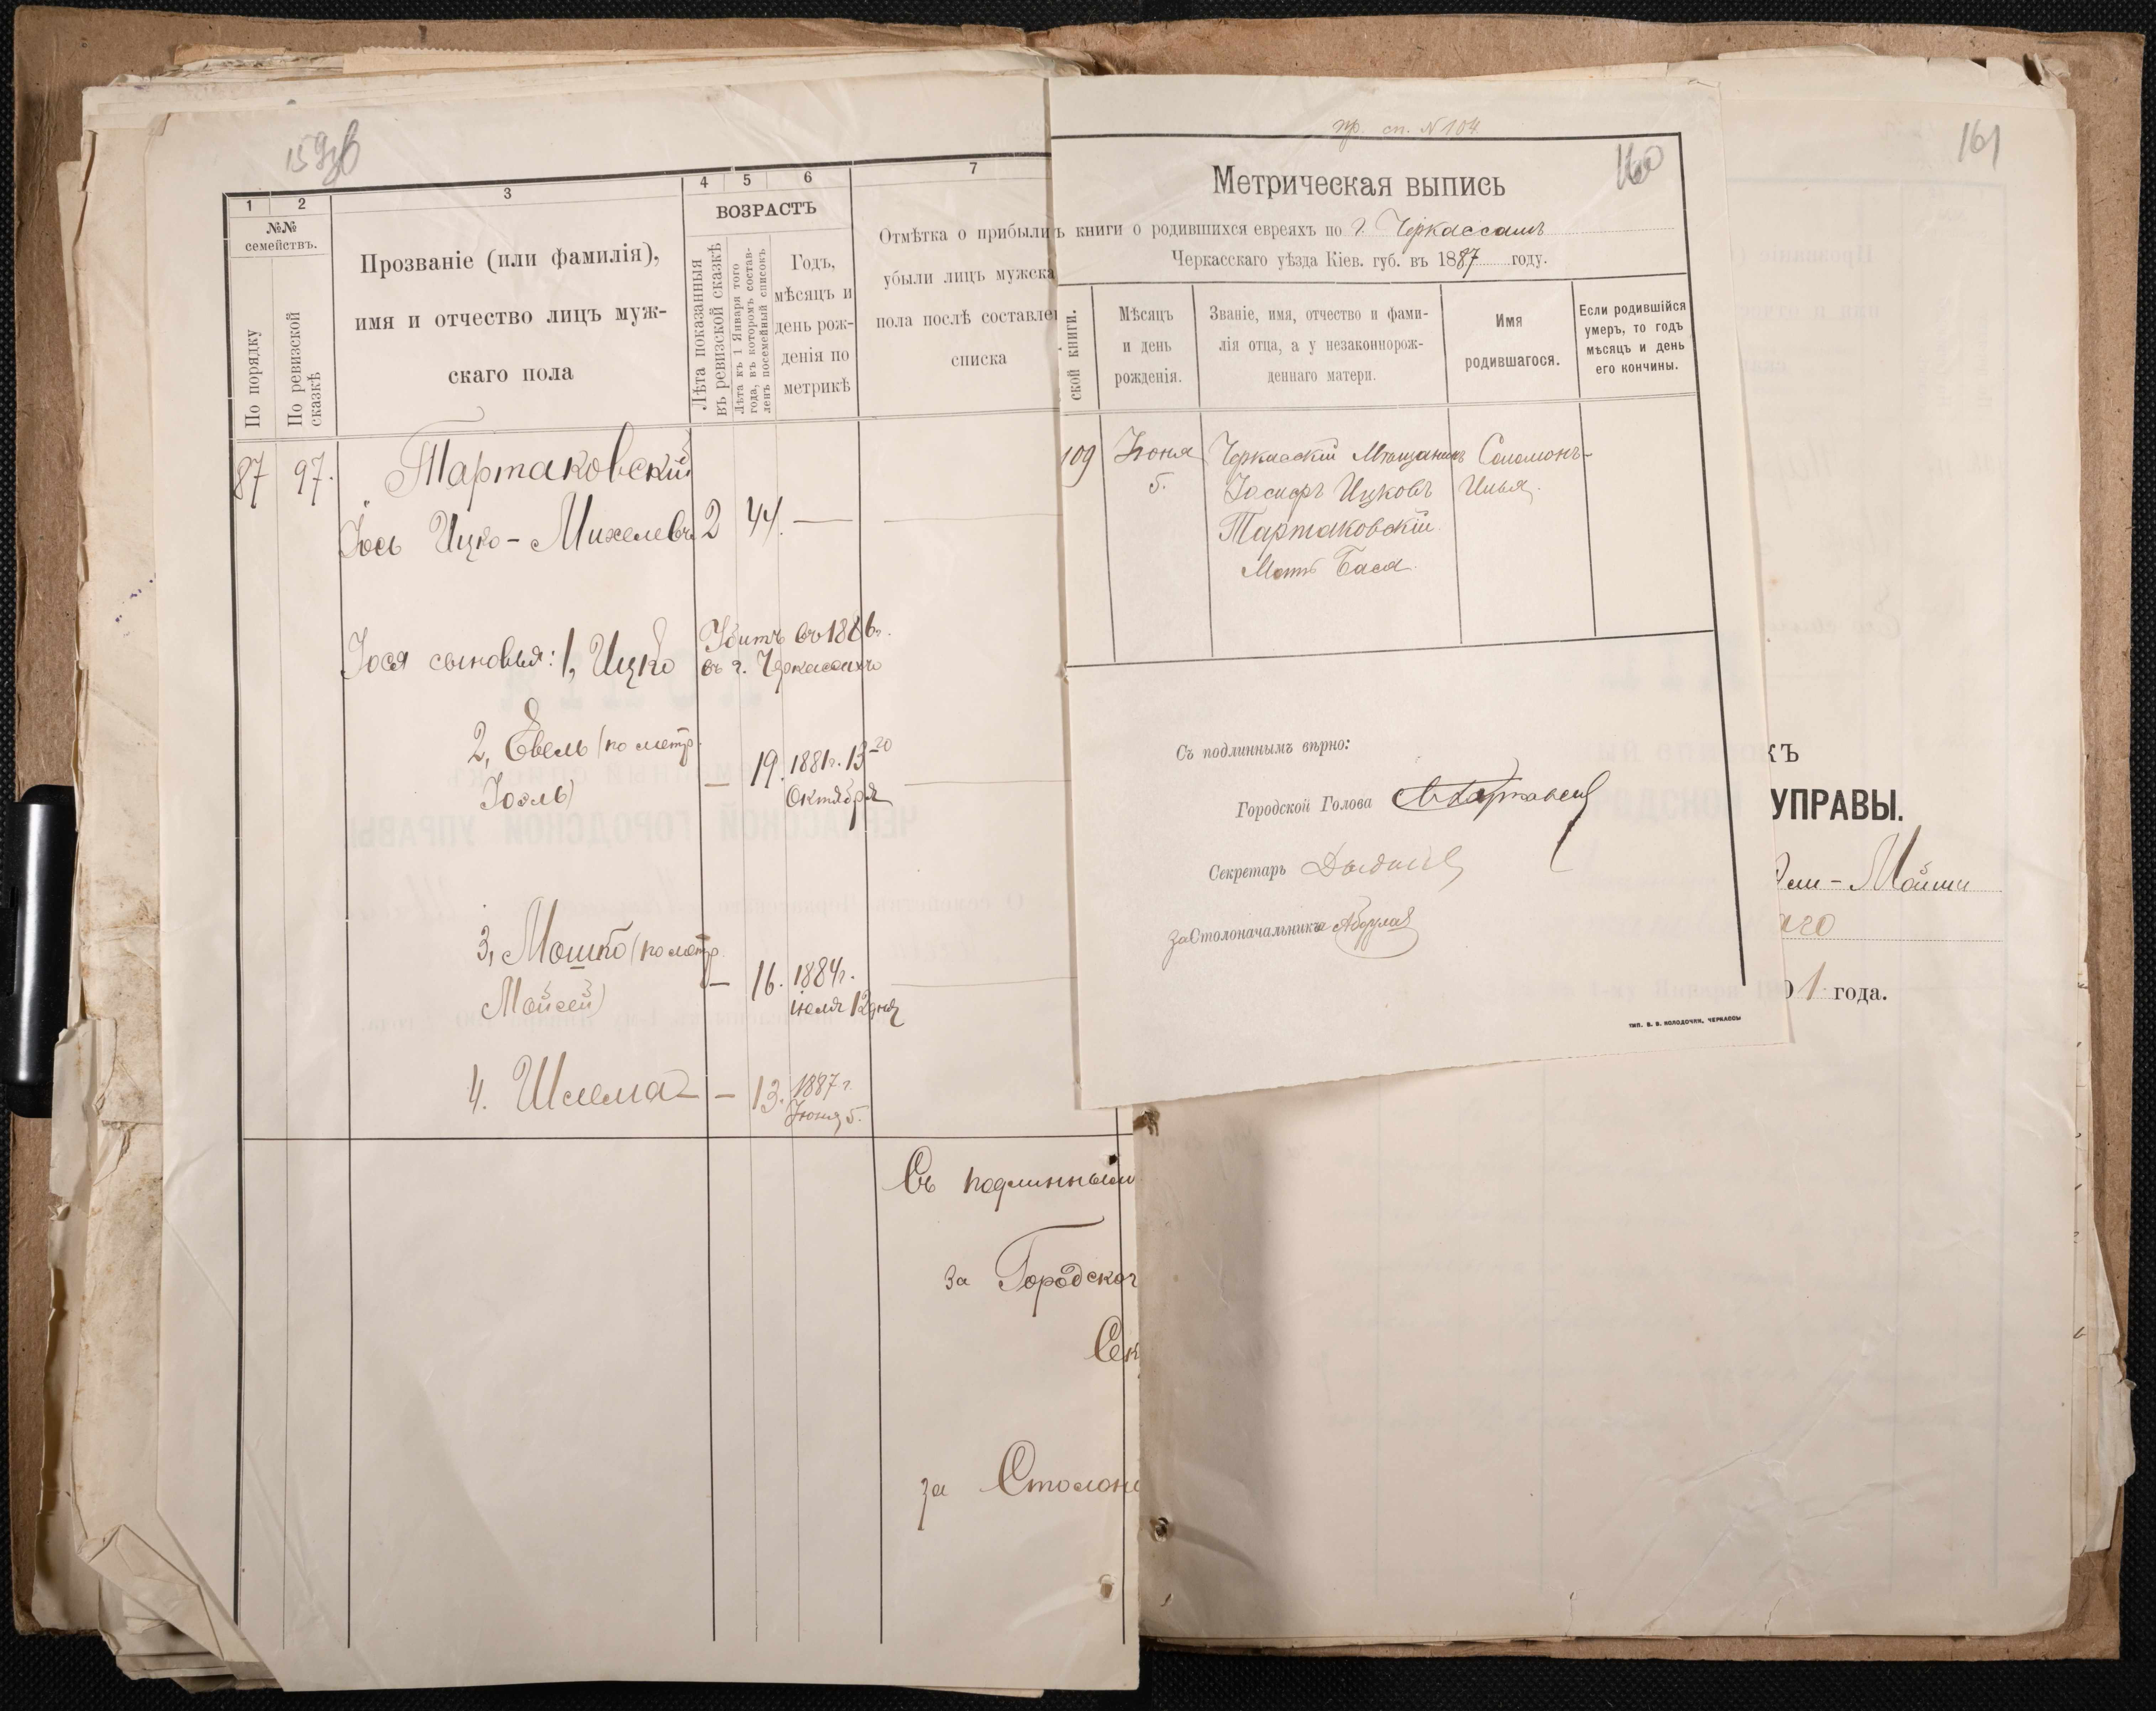 159 об
1 2 3 4 5 6 7
№№ семействъ.
По порядку
По ревизской сказкѣ
Прозваніе (или фамилія),
имя и отчество лицъ муж-
скаго пола
ВОЗРАСТЪ
Лѣта показанныя
въ ревизской сказкѣ
Лѣта къ 1 Января того
года, въ которомъ состав-
ленъ посемейный списокъ
Годъ,
мѣсяцъ и
день рож-
денія по
метрикѣ
Отмѣтка о прибыли
убыли лицъ мужска
пола послѣ составле
списка
87 97. Тартаковскій
Іось Ицко-Михелевъ 2 44. —
Іося сыновья: 1, Ицко Убитъ въ 1886 г.
въ г. Черкассахъ
2, Евель (по метр.
Іоэль) — 19. 1881 г. 13-20
Октября
3, Мошко (по метр.
Мойсей) — 16. 1884 г.
іюля 12 дня
4. Шлема — — 13. 1887 г.
Іюня 5.
Съ подлинным
за Городског
Сек
за Столон
сп. № 104
160
Метрическая выпись
ъ книги о родившихся евреяхъ по г. Черкассамъ
Черкасскаго уѣзда Кіев. губ. въ 1887 году.
ской книги.
Мѣсяцъ
и день
рожденія.
Званіе, имя, отчество и фами-
лія отца, а у незаконнорож-
деннаго матери.
Имя
родившагося.
Если родившійся
умеръ, то годъ
мѣсяцъ и день
его кончины.
109 Іюня Черкасскій Мѣщанинъ Соломонъ-
5. Іосифъ Ицковъ Илья.
Тартаковскій
Мать Бася.
Съ подлиннымъ вѣрно:
Городской Голова
Секретарь
за Столоначальника
ТИП. В. В. КОЛОДОЧКИ, ЧЕРКАССЫ
161
КЪ
УПРАВЫ.
Мойши
аго
01 года.